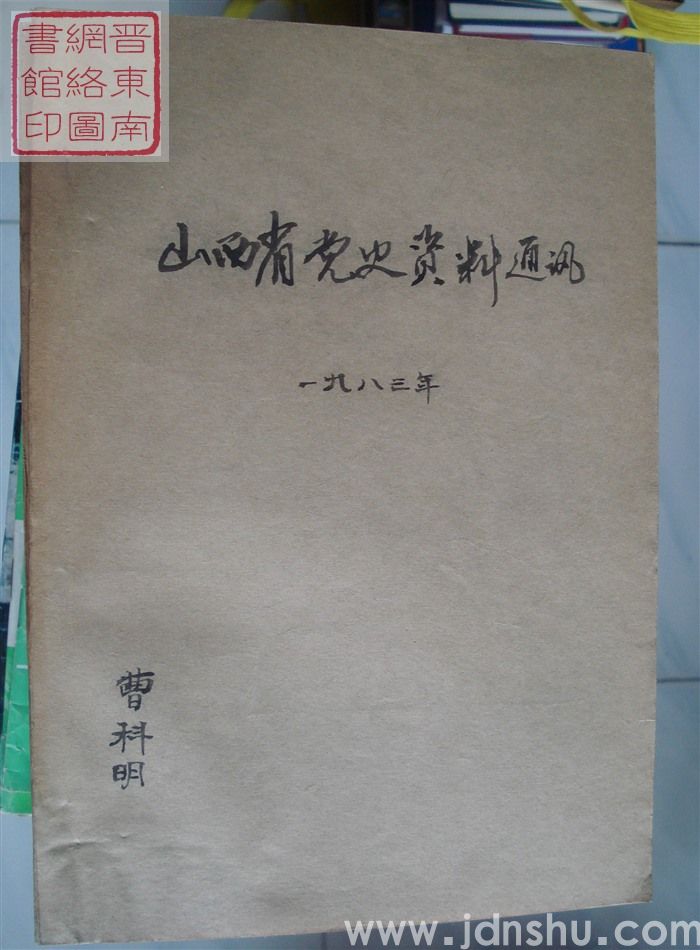 晋東南
網絡圖
書館印
山西省党史資料通讯
一九八三年
曹科明
www.jdnshu.com